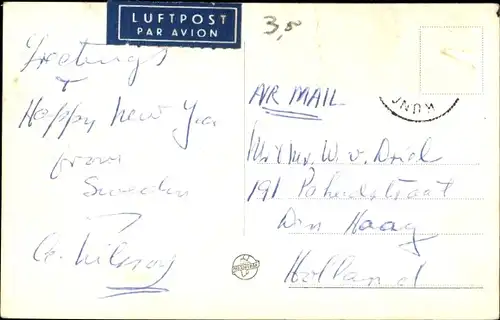 LUFTPOST
PAR AVION
3,5
Greetings
+
Happy New Year
from
Sweden
G. Nilsson
AIR MAIL
W. v. Driel
191
Den Haag
Holland